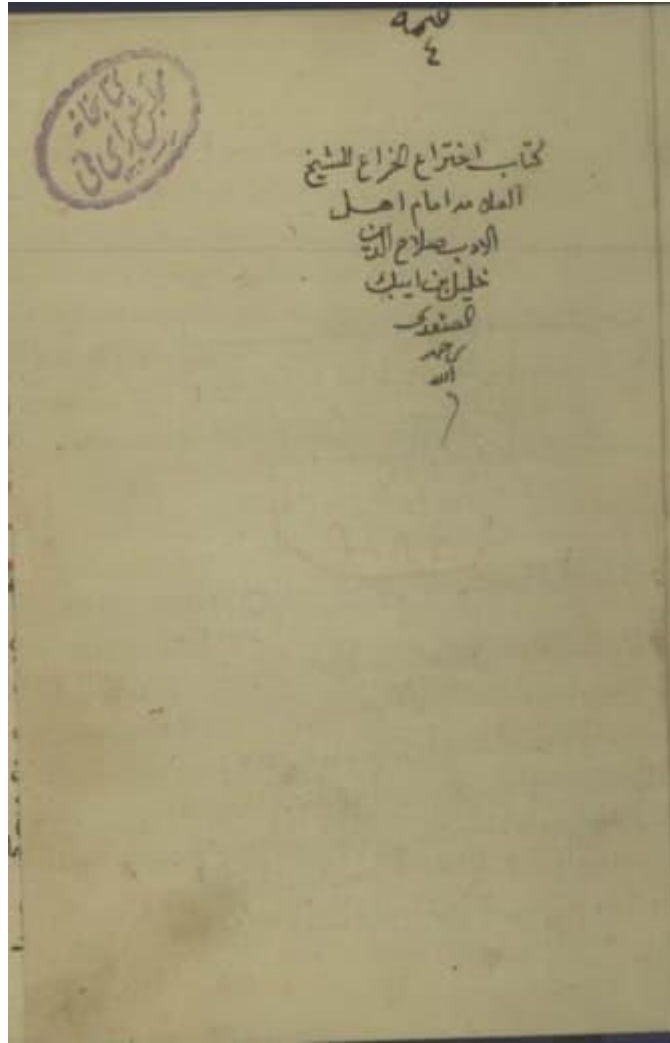 قيمة
٤
كتابخانه
مجلس شورای ملی
كتاب اختراع الخراع للشيخ
العلامه امام اهل
الادب صلاح الدين
خليل بن ايبك
الصفدى
رحمه
الله